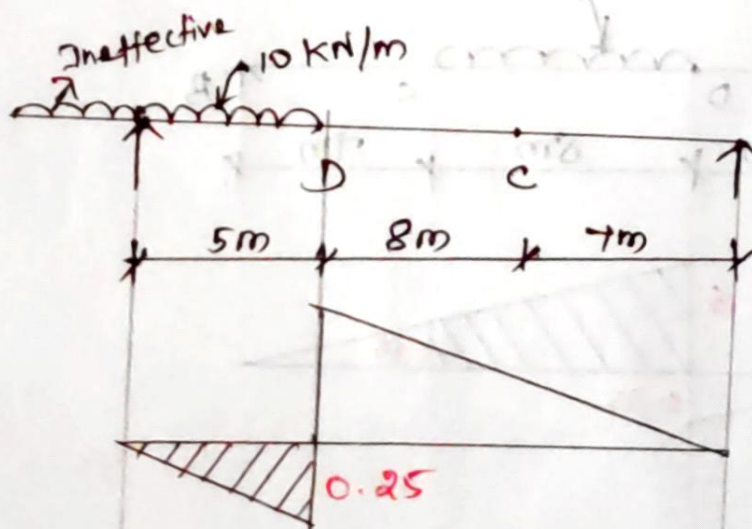 Ineffective
10 KN/m
D
C
5m 8m 7m
0.25